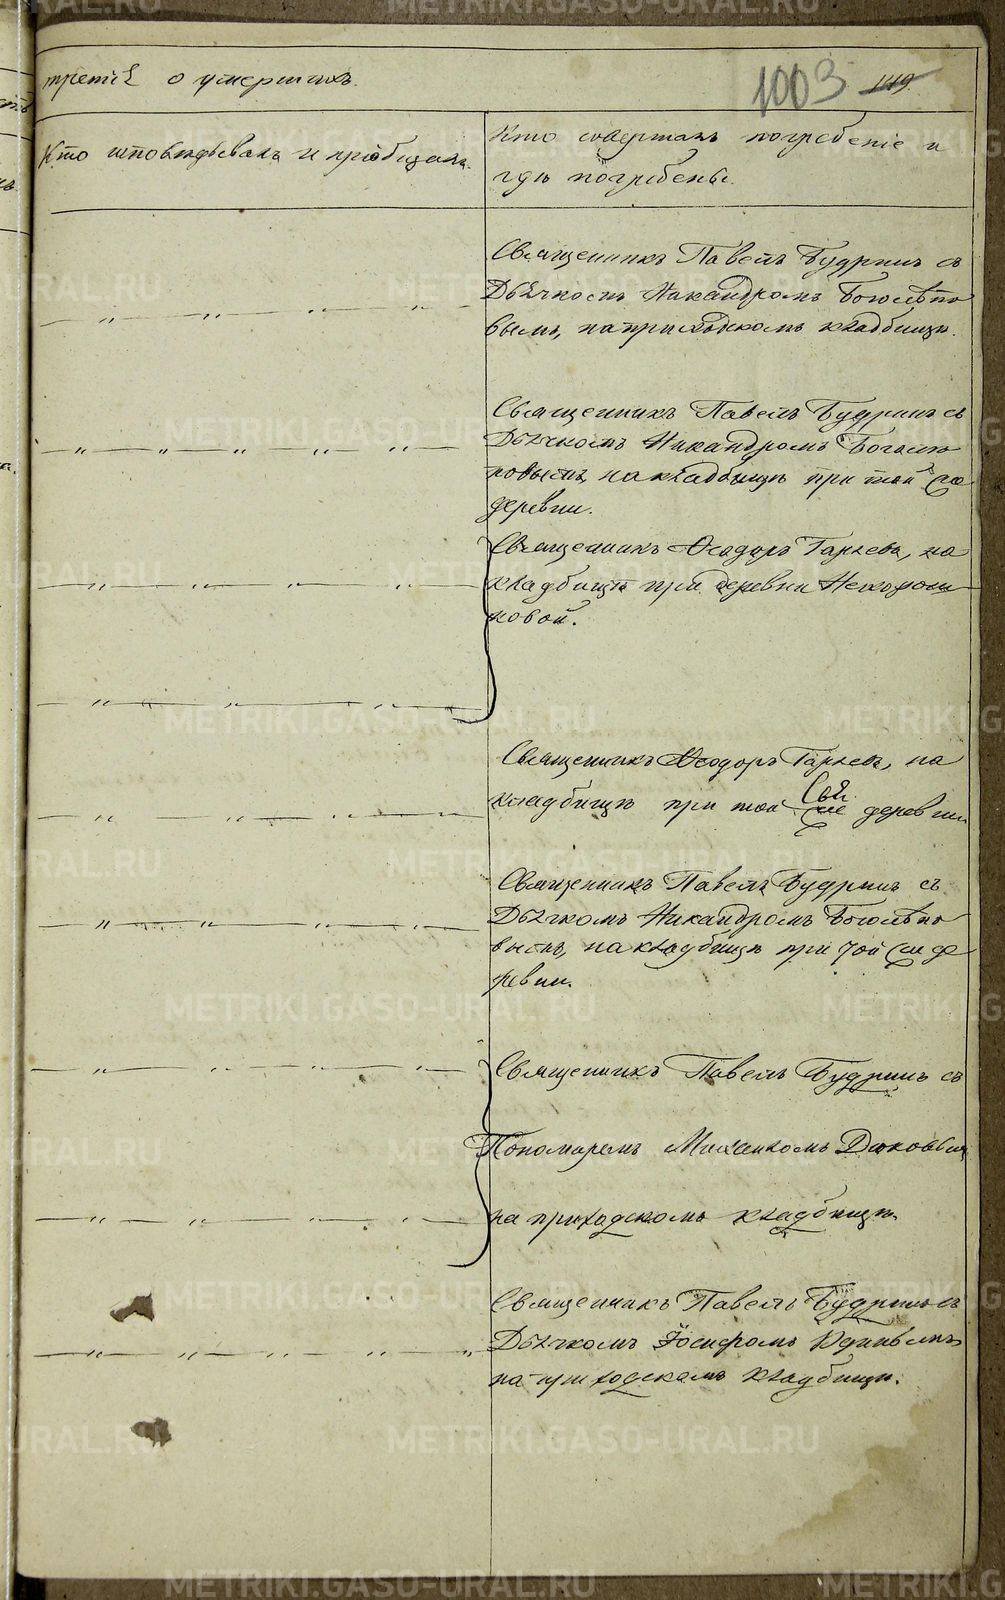 третія о умершихъ.
1003 119
Кто исповѣдывалъ и пріобщалъ.
Кто совершалъ погребеніе и
гдѣ погребены.
Священникъ Павелъ Будринъ съ
Дьячкомъ Никандромъ Боголѣпо
вымъ, на приходскомъ кладбищѣ.
Священникъ Павелъ Будринъ съ
Дьячкомъ Никандромъ Боголѣ
повымъ, на кладбищѣ при той же
деревни.
Священникъ Ѳеодоръ Гаряевъ, на
кладбищѣ при деревни
новой.
Священникъ Ѳеодоръ Гаряевъ, на
кладбищѣ при той деревни
Священникъ Павелъ Будринъ съ
Дьячкомъ Никандромъ Боголѣпо
вымъ, на кладбищѣ при той же де
ревни.
Священникъ Павелъ Будринъ съ
Пономаремъ Михаиломъ
на приходскомъ кладбищѣ.
Священникъ Павелъ Будринъ съ
Дьячкомъ Іосифомъ
на приходскомъ кладбищѣ.
METRIKI.GASO-URAL.RU